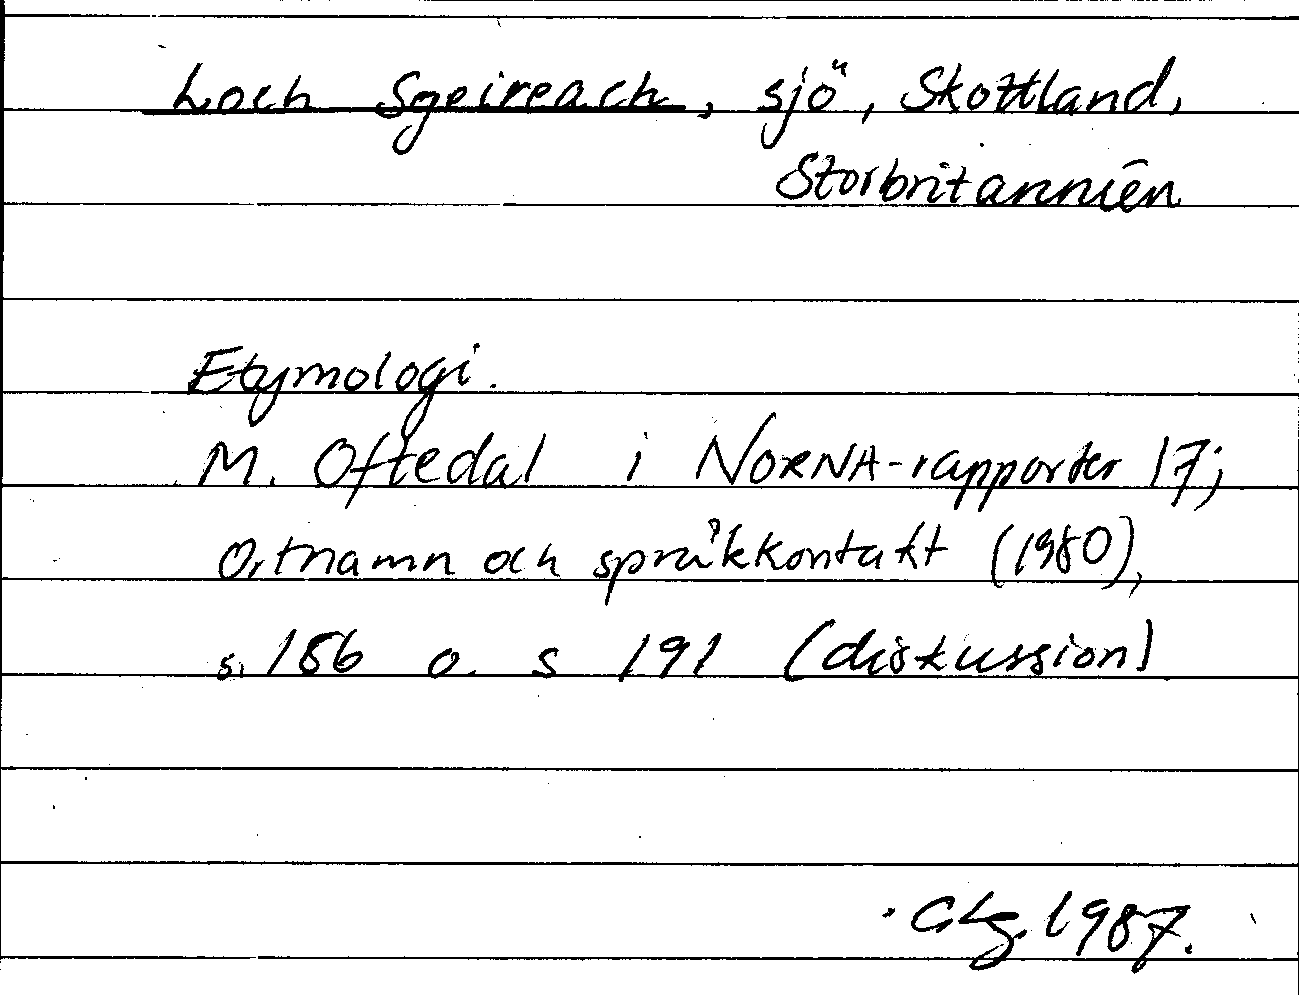 Loch Sgeireach, sjö, Skottland,
Storbritannien
Etymologi.
M. Oftedal i NORNA-rapporter 17;
Ortnamn och språkkontakt (1980),
s. 186 o. s 191 (diskussion)
1987.